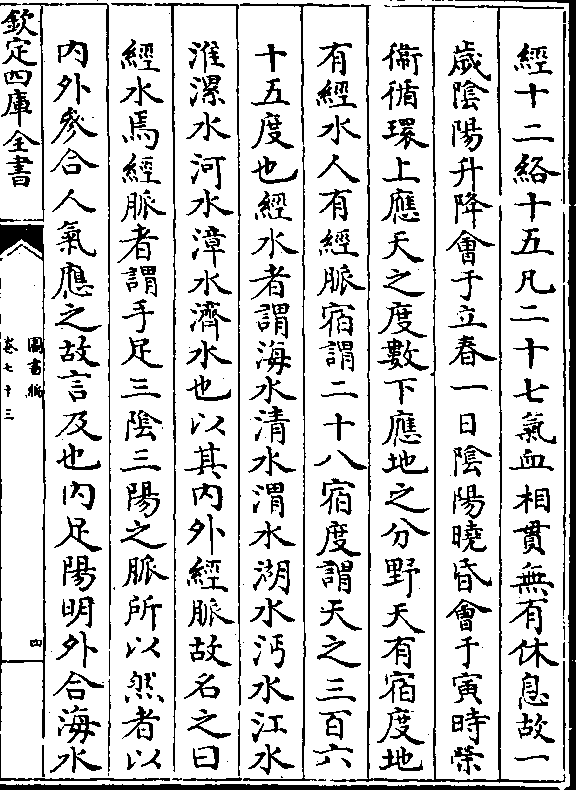 經十二絡十五凡二十七氣血相貫無有休息故一
歲陰陽升降會于立春一日陰陽曉昏會于寅時榮
衞循環上應天之度數下應地之分野天有宿度地
有經水人有經脈宿謂二十八宿度謂天之三百六
十五度也經水者謂海水清水渭水湖水沔水江水
淮漯水河水漳水濟水也以其内外經脈故名之曰
經水焉經脈者謂手足三陰三陽之脈所以然者以
内外參合人氣應之故言及也内足陽明外合海水
欽定四庫全書
圖書編
卷七十三
四